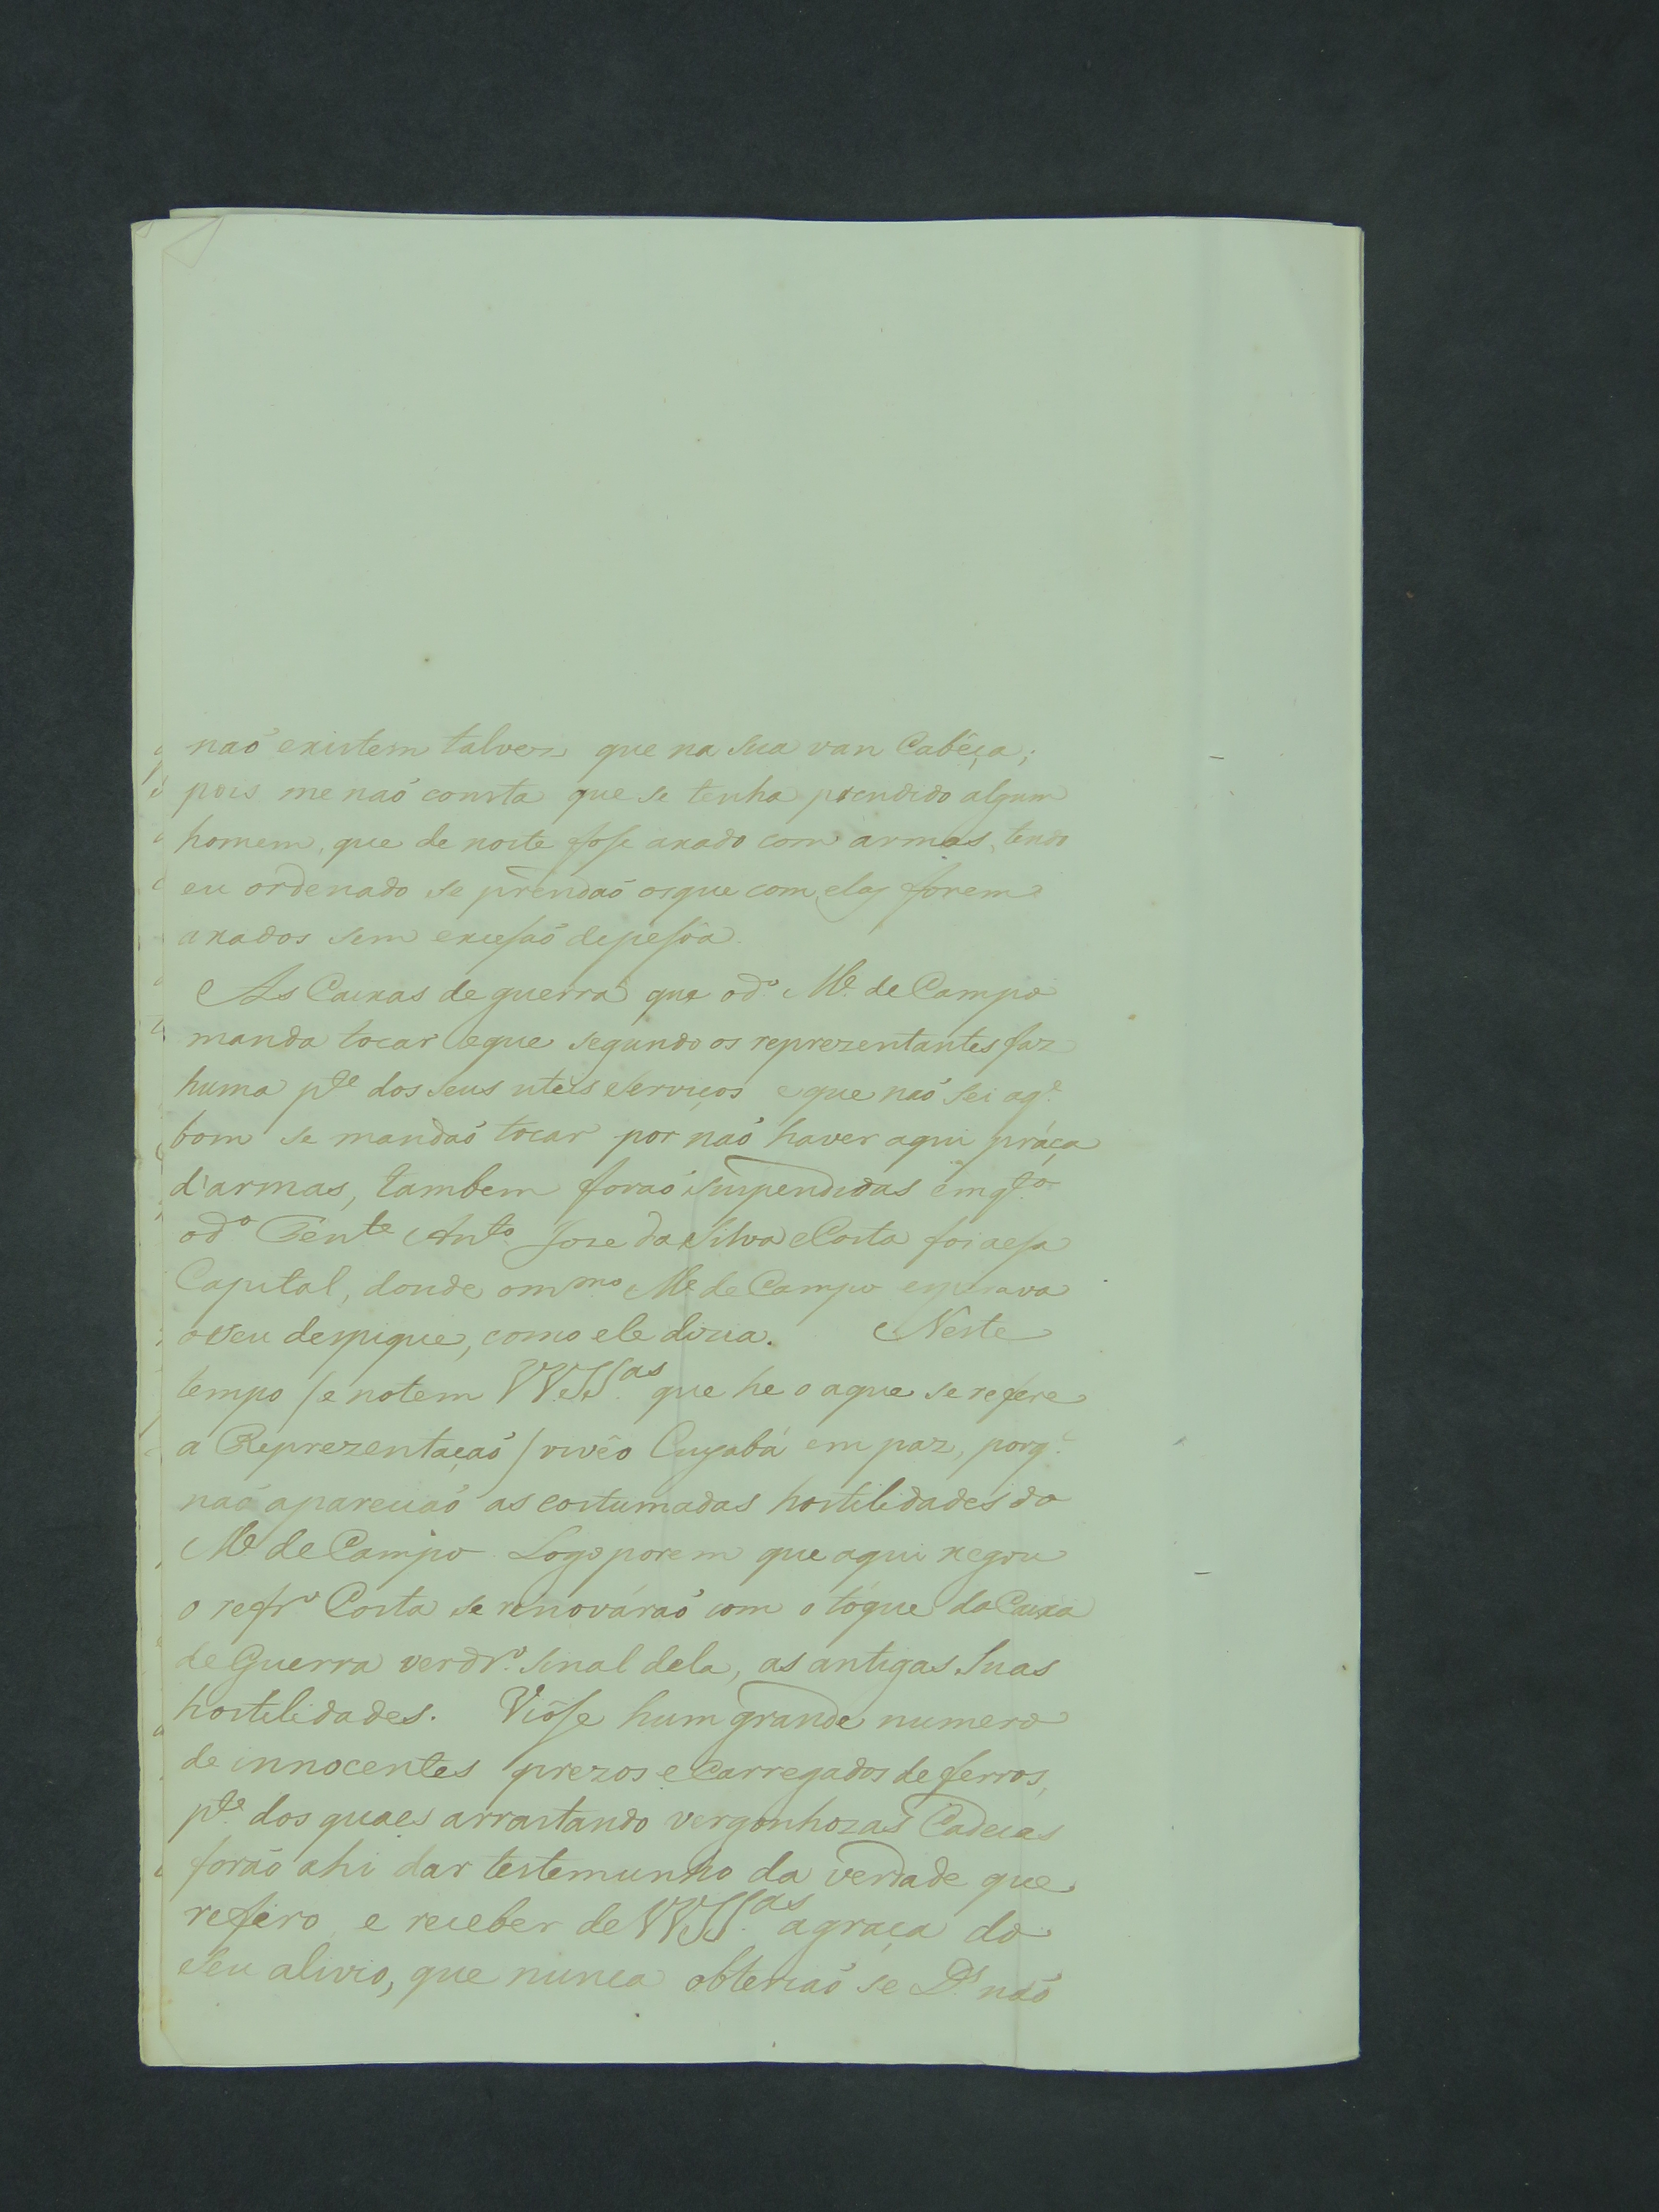 naõ existem talvez que na sua van Cabêça;
pois me naõ consta que se tenha prendido algum
homem, que de noite fose axado com armas, tendo
eu ordenado se prendaõ osque com elas forem
axados sem excesaõ depesôa.
As Caixas de guerra que od.º M.e de Campo
manda tocar eque segundo os reprezentantes faz
huma p.te dos seus uteis serviços eque naõ sei aq.e
bom se mandaõ tocar por naõ haver aqui práça
d'armas, tambem foraõ suspendidas emq.to
od.º Ten.te Ant.º Joze da Silva Costa foi aesa
Capital, donde om.mo M.e de Campo esperava
oseu despique, como ele dizia. Neste
tempo /e notem VV.SS.as que he o aque se refere
a Reprezentaçaõ/ vivêo Cuyabá em paz, porq.e
naõ apareciaõ as costumadas hostilidades do
M.e de Campo. Logo porem que aqui xegou
o refr.º Costa se renováraõ com o tóque da Caixa
de Guerra verdr.º sinal dela, as antigas suas
hostilidades. Viôse hum grande numero
de innocentes prezos e Carregados de ferros,
p.te dos quaes arrastando vergonhozas Cadeias
foraõ ahi dar testemunho da verdade que
refiro, e receber de VV.SS.as agraça do
seu alivio, que nunca obteriaõ se D.s naõ